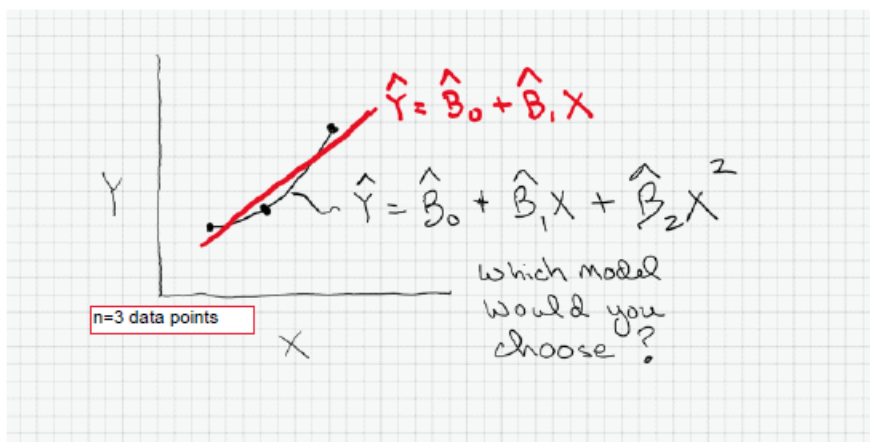 Ŷ = B̂₀ + B̂₁X
Y
Ŷ = B̂₀ + B̂₁X + B̂₂X²
which model
would you
choose?
n=3 data points
X